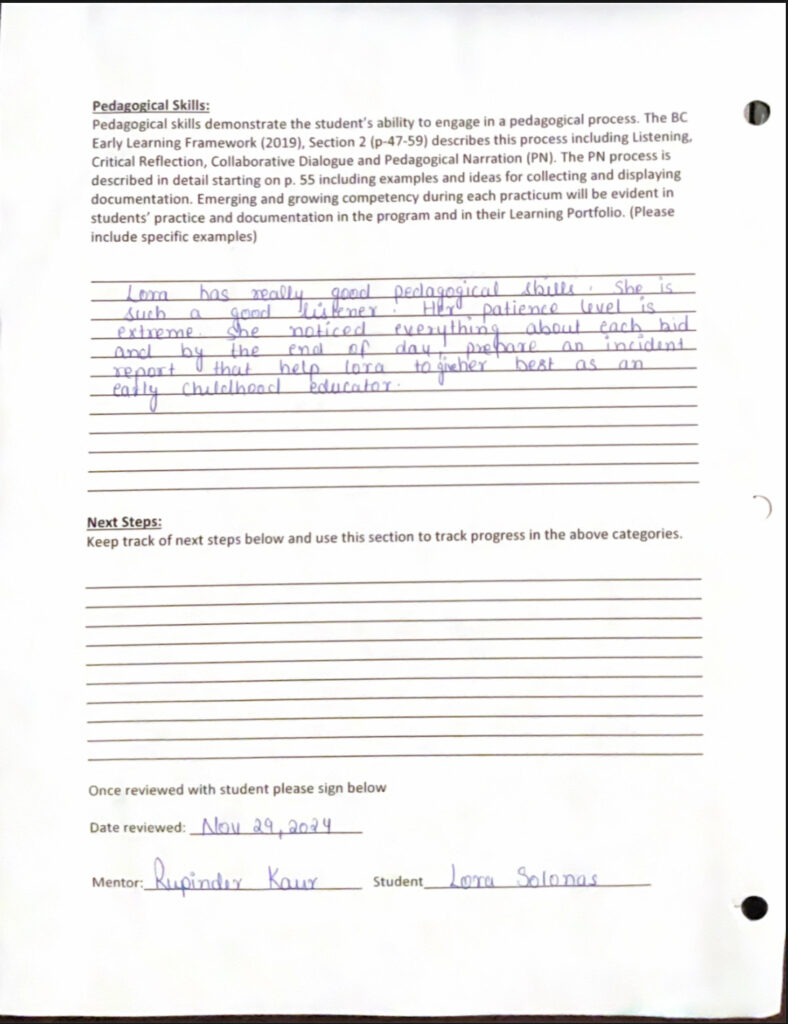 Pedagogical Skills:
Pedagogical skills demonstrate the student's ability to engage in a pedagogical process. The BC
Early Learning Framework (2019), Section 2 (p-47-59) describes this process including Listening,
Critical Reflection, Collaborative Dialogue and Pedagogical Narration (PN). The PN process is
described in detail starting on p. 55 including examples and ideas for collecting and displaying
documentation. Emerging and growing competency during each practicum will be evident in
students' practice and documentation in the program and in their Learning Portfolio. (Please
include specific examples)
Lora has really good pedagogical skills. She is
such a good listener. Her patience level is
extreme. She noticed everything about each kid
and by the end of day, prepare an incident
report that help lora to her best as an
early childhood educator.
Next Steps:
Keep track of next steps below and use this section to track progress in the above categories.
Once reviewed with student please sign below
Date reviewed: Nov 29, 2024
Mentor: Rupinder Kaur Student Lora Solonas